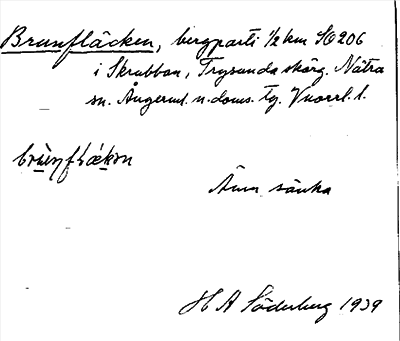 Brunfläcken, bergparti ½ km SO 206
i Skrubban, Trysunda skärg. Nätra
sn. Ångerml. n. doms. tg. Vnorrl. l.
Även sänka
H A Söderberg 1939